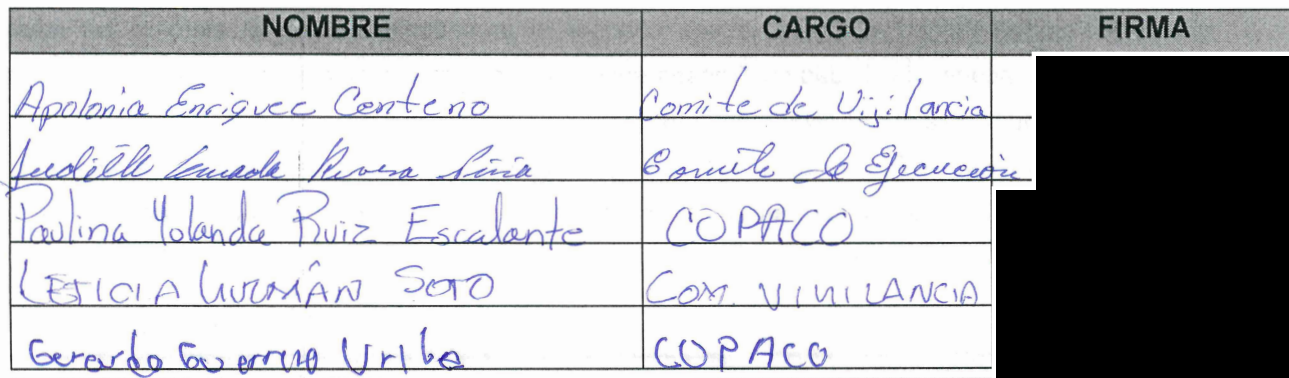 NOMBRE CARGO FIRMA
Apolonia Enriquec Centeno Comite de Vijilancia
Judith Rivera Comite de Ejecución
Paulina Yolanda Ruiz Escalante COPACO
LETICIA GUZMÁN SOTO COM. VIGILANCIA
Gerardo Guerrero Uribe COPACO